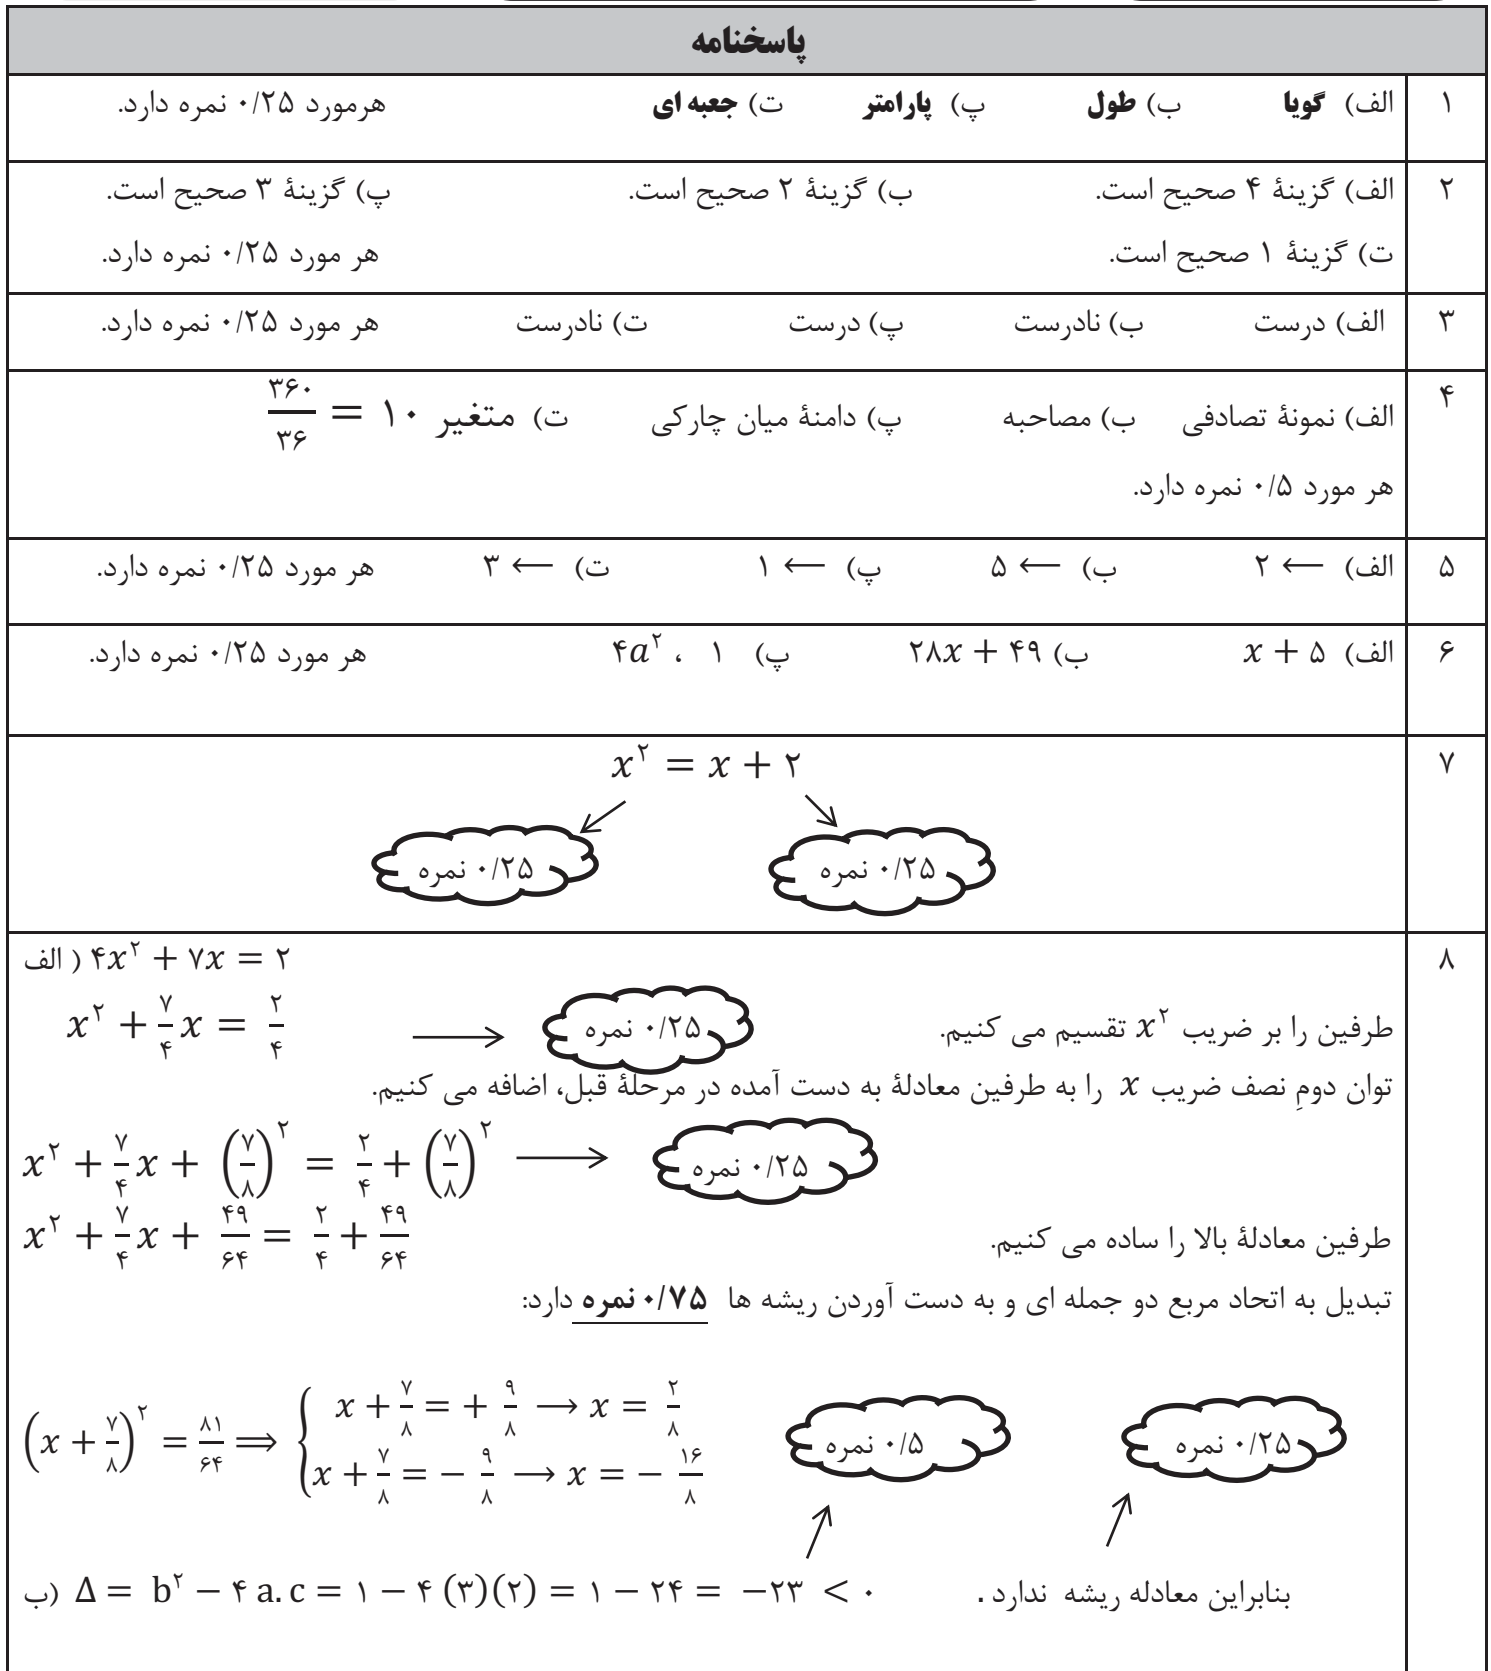 پاسخنامه
۱ الف) گویا ب) طول پ) پارامتر ت) جعبه ای هرمورد ۰/۲۵ نمره دارد.
۲ الف) گزینهٔ ۴ صحیح است. ب) گزینهٔ ۲ صحیح است. پ) گزینهٔ ۳ صحیح است.
ت) گزینهٔ ۱ صحیح است. هر مورد ۰/۲۵ نمره دارد.
۳ الف) درست ب) نادرست پ) درست ت) نادرست هر مورد ۰/۲۵ نمره دارد.
۴ الف) نمونهٔ تصادفی ب) مصاحبه پ) دامنهٔ میان چارکی ت) متغیر ۱۰ = ۳۶۰/۳۶
هر مورد ۰/۵ نمره دارد.
۵ الف) ⟵ ۲ ب) ⟵ ۵ پ) ⟵ ۱ ت) ⟵ ۳ هر مورد ۰/۲۵ نمره دارد.
۶ الف) x + ۵ ب) ۲۸x + ۴۹ پ) ۱ ، ۴a^۲ هر مورد ۰/۲۵ نمره دارد.
۷ x^۲ = x + ۲
۰/۲۵ نمره ۰/۲۵ نمره
۸ الف ) ۴x^۲ + ۷x = ۲
طرفین را بر ضریب x^۲ تقسیم می کنیم. ۰/۲۵ نمره ⟶ x^۲ + ۷/۴ x = ۲/۴
توان دومِ نصف ضریب x را به طرفین معادلهٔ به دست آمده در مرحلهٔ قبل، اضافه می کنیم.
x^۲ + ۷/۴ x + (۷/۸)^۲ = ۲/۴ + (۷/۸)^۲ ⟶ ۰/۲۵ نمره
طرفین معادلهٔ بالا را ساده می کنیم. x^۲ + ۷/۴ x + ۴۹/۶۴ = ۲/۴ + ۴۹/۶۴
تبدیل به اتحاد مربع دو جمله ای و به دست آوردن ریشه ها ۰/۷۵ نمره دارد:
(x + ۷/۸)^۲ = ۸۱/۶۴ ⟹ { x + ۷/۸ = + ۹/۸ ⟶ x = ۲/۸
x + ۷/۸ = − ۹/۸ ⟶ x = − ۱۶/۸
۰/۵ نمره ۰/۲۵ نمره
ب) Δ = b^۲ − ۴ a. c = ۱ − ۴ (۳)(۲) = ۱ − ۲۴ = −۲۳ < ۰ بنابراین معادله ریشه ندارد .